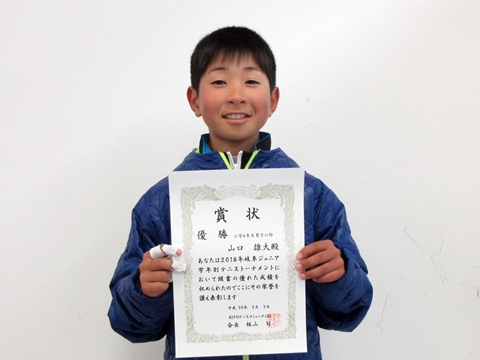 賞状
優勝 小学4年生男子の部
山口 雄大殿
あなたは2018年岐阜ジュニア
学年別テニストーナメントに
おいて頭書の優れた成績を
収められたのでここにその栄誉を
讃え表彰します
平成30年 3月 5日
会長 板山